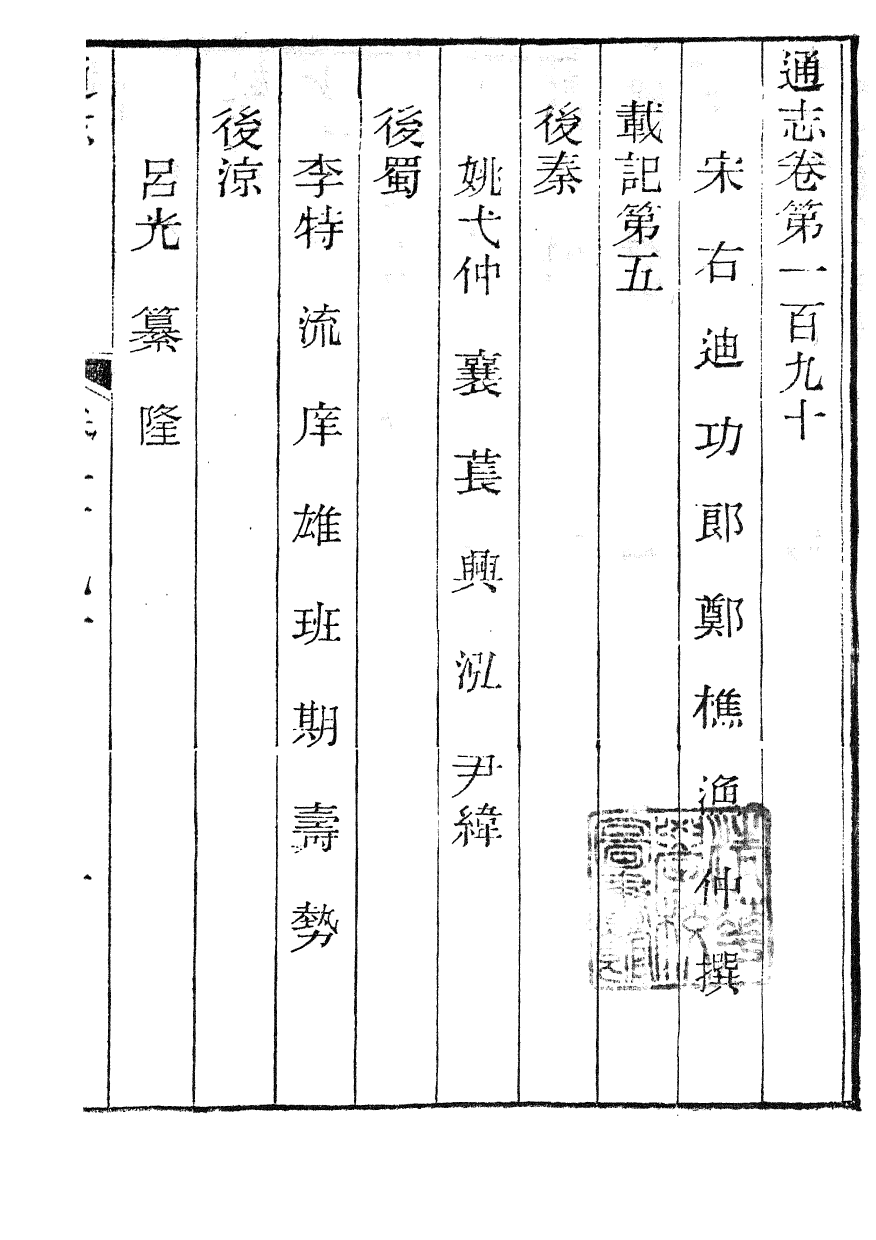 通志卷第一百九十
宋右迪功郎鄭樵漁仲撰
載記第五
後秦
姚弋仲 襄 萇 興 泓 尹緯
後蜀
李特 流 庠 雄 班 期 壽 勢
後涼
呂光 纂 隆